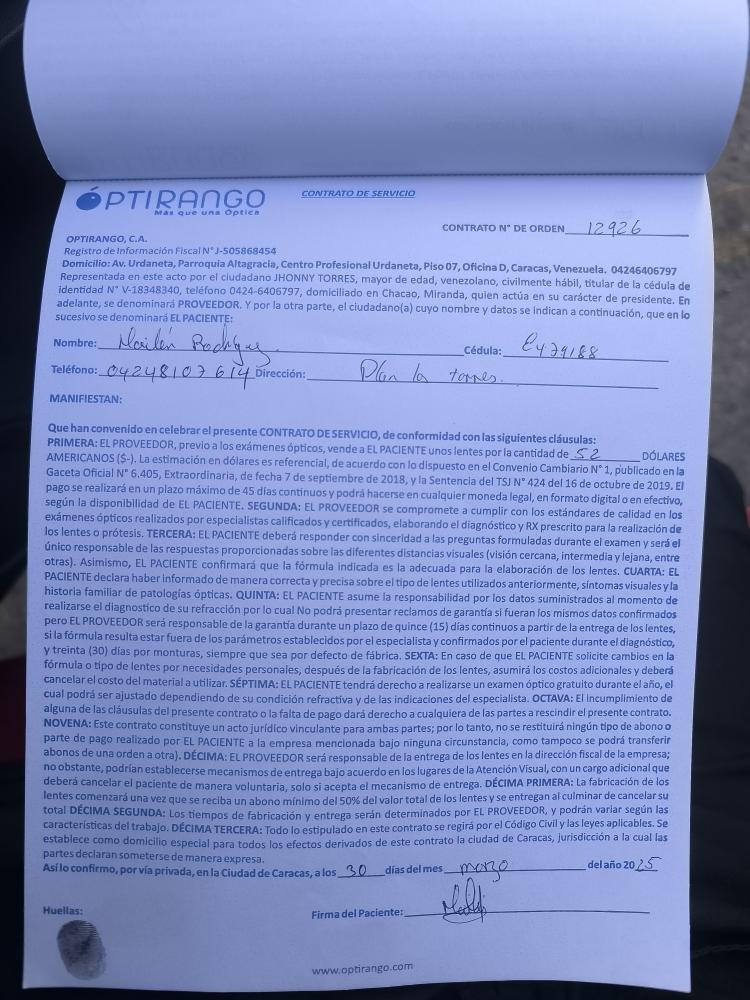 OPTIRANGO
Más que una Óptica
CONTRATO DE SERVICIO
CONTRATO N° DE ORDEN 12926
OPTIRANGO, C.A.
Registro de Información Fiscal N° J-505868454
Domicilio: Av. Urdaneta, Parroquia Altagracia, Centro Profesional Urdaneta, Piso 07, Oficina D, Caracas, Venezuela. 04246406797
Representada en este acto por el ciudadano JHONNY TORRES, mayor de edad, venezolano, civilmente hábil, titular de la cédula de
identidad N° V-18348340, teléfono 0424-6406797, domiciliado en Chacao, Miranda, quien actúa en su carácter de presidente. En
adelante, se denominará PROVEEDOR. Y por la otra parte, el ciudadano(a) cuyo nombre y datos se indican a continuación, que en lo
sucesivo se denominará EL PACIENTE:
Nombre: Rodríguez Cédula:
Teléfono: 04248107614 Dirección: Plan la torres.
MANIFIESTAN:
Que han convenido en celebrar el presente CONTRATO DE SERVICIO, de conformidad con las siguientes cláusulas:
PRIMERA: EL PROVEEDOR, previo a los exámenes ópticos, vende a EL PACIENTE unos lentes por la cantidad de 52 DÓLARES
AMERICANOS ($-). La estimación en dólares es referencial, de acuerdo con lo dispuesto en el Convenio Cambiario N° 1, publicado en la
Gaceta Oficial N° 6.405, Extraordinaria, de fecha 7 de septiembre de 2018, y la Sentencia del TSJ N° 424 del 16 de octubre de 2019. El
pago se realizará en un plazo máximo de 45 días continuos y podrá hacerse en cualquier moneda legal, en formato digital o en efectivo,
según la disponibilidad de EL PACIENTE. SEGUNDA: EL PROVEEDOR se compromete a cumplir con los estándares de calidad en los
exámenes ópticos realizados por especialistas calificados y certificados, elaborando el diagnóstico y RX prescrito para la realización de
los lentes o prótesis. TERCERA: EL PACIENTE deberá responder con sinceridad a las preguntas formuladas durante el examen y será el
único responsable de las respuestas proporcionadas sobre las diferentes distancias visuales (visión cercana, intermedia y lejana, entre
otras). Asimismo, EL PACIENTE confirmará que la fórmula indicada es la adecuada para la elaboración de los lentes. CUARTA: EL
PACIENTE declara haber informado de manera correcta y precisa sobre el tipo de lentes utilizados anteriormente, síntomas visuales y la
historia familiar de patologías ópticas. QUINTA: EL PACIENTE asume la responsabilidad por los datos suministrados al momento de
realizarse el diagnostico de su refracción por lo cual No podrá presentar reclamos de garantía si fueran los mismos datos confirmados
pero EL PROVEEDOR será responsable de la garantía durante un plazo de quince (15) días continuos a partir de la entrega de los lentes,
si la fórmula resulta estar fuera de los parámetros establecidos por el especialista y confirmados por el paciente durante el diagnóstico,
y treinta (30) días por monturas, siempre que sea por defecto de fábrica. SEXTA: En caso de que EL PACIENTE solicite cambios en la
fórmula o tipo de lentes por necesidades personales, después de la fabricación de los lentes, asumirá los costos adicionales y deberá
cancelar el costo del material a utilizar. SÉPTIMA: EL PACIENTE tendrá derecho a realizarse un examen óptico gratuito durante el año, el
cual podrá ser ajustado dependiendo de su condición refractiva y de las indicaciones del especialista. OCTAVA: El incumplimiento de
alguna de las cláusulas del presente contrato o la falta de pago dará derecho a cualquiera de las partes a rescindir el presente contrato.
NOVENA: Este contrato constituye un acto jurídico vinculante para ambas partes; por lo tanto, no se restituirá ningún tipo de abono o
parte de pago realizado por EL PACIENTE a la empresa mencionada bajo ninguna circunstancia, como tampoco se podrá transferir
abonos de una orden a otra). DÉCIMA: EL PROVEEDOR será responsable de la entrega de los lentes en la dirección fiscal de la empresa;
no obstante, podrían establecerse mecanismos de entrega bajo acuerdo en los lugares de la Atención Visual, con un cargo adicional que
deberá cancelar el paciente de manera voluntaria, solo si acepta el mecanismo de entrega. DÉCIMA PRIMERA: La fabricación de los
lentes comenzará una vez que se reciba un abono mínimo del 50% del valor total de los lentes y se entregan al culminar de cancelar su
total DÉCIMA SEGUNDA: Los tiempos de fabricación y entrega serán determinados por EL PROVEEDOR, y podrán variar según las
características del trabajo. DÉCIMA TERCERA: Todo lo estipulado en este contrato se regirá por el Código Civil y las leyes aplicables. Se
establece como domicilio especial para todos los efectos derivados de este contrato la ciudad de Caracas, jurisdicción a la cual las
partes declaran someterse de manera expresa.
Así lo confirmo, por vía privada, en la Ciudad de Caracas, a los 30 días del mes marzo del año 2025
Huellas:
Firma del Paciente:
www.optirango.com